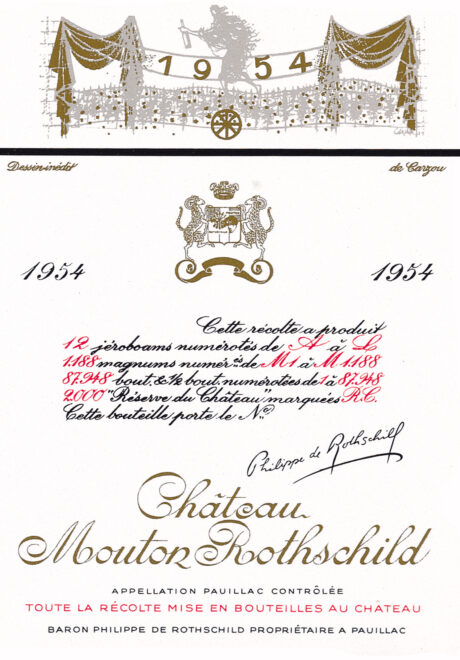 1954
Carzou
Dessin inédit de Carzou
1954 1954
Cette récolte a produit
12 jéroboams numérotés de A à L
1.188 magnums numér.és de M1 à M 1.188
87.948 bout. & ½ bout. numérotées de 1 à 87.948
2.000 "Réserve du Château" marquées R.C.
Cette bouteille porte le N.o
Philippe de Rothschild
Château
Mouton Rothschild
APPELLATION PAUILLAC CONTRÔLÉE
TOUTE LA RÉCOLTE MISE EN BOUTEILLES AU CHÂTEAU
BARON PHILIPPE DE ROTHSCHILD PROPRIÉTAIRE A PAUILLAC